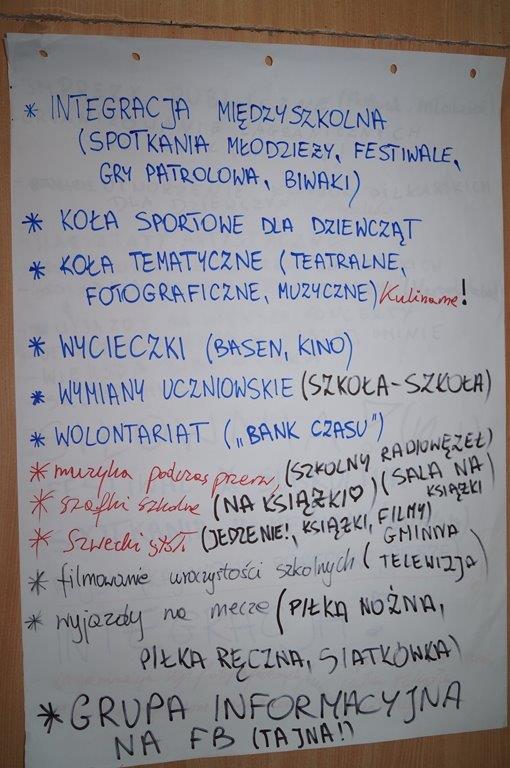 * INTEGRACJA MIĘDZYSZKOLNA
(SPOTKANIA MŁODZIEŻY, FESTIWALE,
GRY PATROLOWA, BIWAKI)
* KOŁA SPORTOWE DLA DZIEWCZĄT
* KOŁA TEMATYCZNE (TEATRALNE,
FOTOGRAFICZNE, MUZYCZNE) Kulinarne!
* WYCIECZKI (BASEN, KINO)
* WYMIANY UCZNIOWSKIE (SZKOŁA-SZKOŁA)
* WOLONTARIAT („BANK CZASU")
* muzyka podczas przerw, (SZKOLNY RADIOWĘZEŁ)
* szafki szkolne (NA KSIĄŻKI♡) (SALA NA
KSIĄŻKI
* Szwecki stół (JEDZENIE!, KSIĄŻKI, FILMY)
* filmowanie uroczystości szkolnych (GMINNA
TELEWIZJA)
* wyjazdy na mecze (PIŁKA NOŻNA,
PIŁKA RĘCZNA, SIATKÓWKA)
* GRUPA INFORMACYJNA
NA FB (TAJNA!)